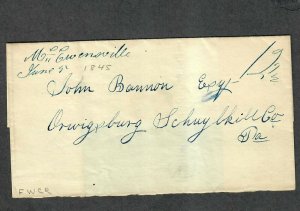 McEwensville
June 5 1845
John Bannon Esqr
Orwigsburg Schuylkill Co.
Pa
FWCR